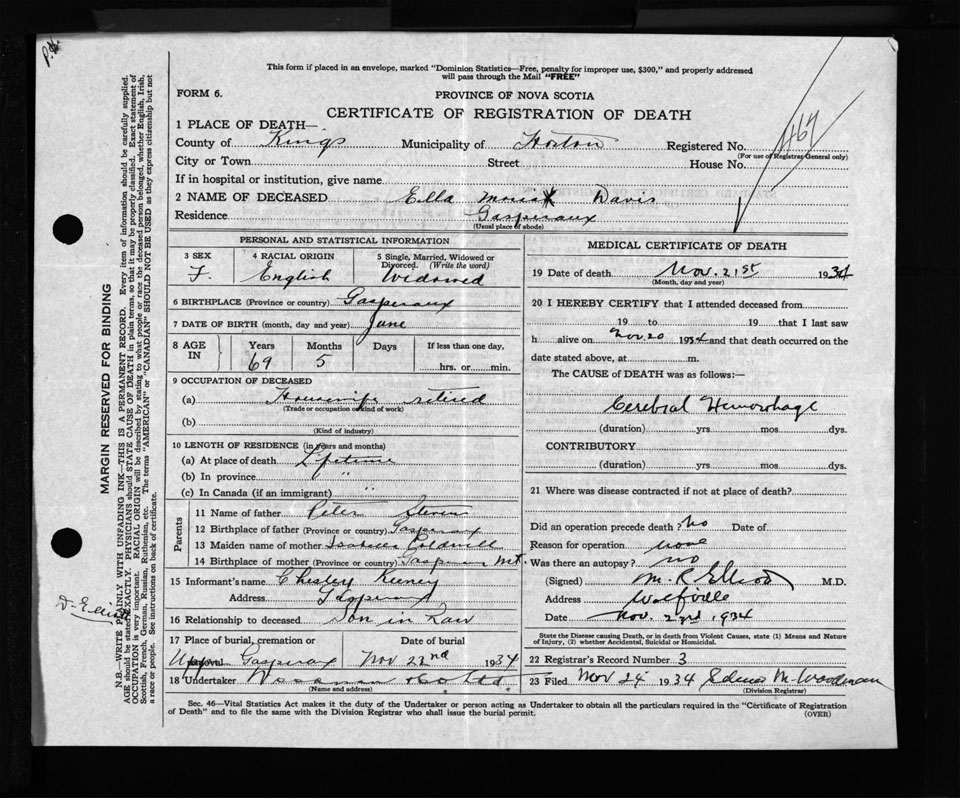 P.H.
This form if placed in an envelope, marked "Dominion Statistics—Free, penalty for improper use, $300," and properly addressed
will pass through the Mail "FREE"
FORM 6.
PROVINCE OF NOVA SCOTIA
CERTIFICATE OF REGISTRATION OF DEATH
1 PLACE OF DEATH—
County of Kings Municipality of Horton Registered No. 467
(For use of Registrar-General only)
City or Town Street House No.
If in hospital or institution, give name
2 NAME OF DECEASED Ella Davis
Residence Gasperaux
(Usual place of abode)
PERSONAL AND STATISTICAL INFORMATION
3 SEX 4 RACIAL ORIGIN 5 Single, Married, Widowed or
Divorced. (Write the word)
F. English Widowed
6 BIRTHPLACE (Province or country) Gasperaux
7 DATE OF BIRTH (month, day and year) June
8 AGE IN Years Months Days If less than one day,
69 5 hrs. or min.
9 OCCUPATION OF DECEASED
(a) Housewife retired
(Trade or occupation or kind of work)
(b)
(Kind of industry)
10 LENGTH OF RESIDENCE (in years and months)
(a) At place of death Lifetime
(b) In province " "
(c) In Canada (if an immigrant) " "
Parents
11 Name of father Peter Steven
12 Birthplace of father (Province or country) Gasperaux
13 Maiden name of mother Isabella Coldwell
14 Birthplace of mother (Province or country) Gasperaux Mt.
15 Informant's name Chesley Keeney
Address Gasperaux
16 Relationship to deceased Son in Law
17 Place of burial, cremation or Date of burial
removal Gasperaux Nov 22nd 1934
18 Undertaker Woodman
(Name and address)
MEDICAL CERTIFICATE OF DEATH
19 Date of death Nov. 21st 1934
(Month, day and year)
20 I HEREBY CERTIFY that I attended deceased from
19 to 19 that I last saw
h alive on Nov 20 1934 and that death occurred on the
date stated above, at m.
The CAUSE of DEATH was as follows:—
Cerebral Hemorrhage
(duration) yrs. mos. dys.
CONTRIBUTORY
(duration) yrs. mos. dys.
21 Where was disease contracted if not at place of death?
Did an operation precede death? No Date of
Reason for operation none
Was there an autopsy? no
(Signed) M. R. Elliott M.D.
Address Wolfville
Date Nov. 22nd, 1934
State the Disease causing Death, or in death from Violent Causes, state (1) Means and Nature
of Injury, (2) whether Accidental, Suicidal or Homicidal.
22 Registrar's Record Number 3
23 Filed Nov 24 1934 M. Woodman
(Division Registrar)
Sec. 46—Vital Statistics Act makes it the duty of the Undertaker or person acting as Undertaker to obtain all the particulars required in the "Certificate of Registration
of Death" and to file the same with the Division Registrar who shall issue the burial permit.
(OVER)
MARGIN RESERVED FOR BINDING
N.B.—WRITE PLAINLY WITH UNFADING INK—THIS IS A PERMANENT RECORD. Every item of information should be carefully supplied.
AGE should be stated EXACTLY. PHYSICIANS should STATE CAUSE OF DEATH in plain terms, so that it may be properly classified. Exact statement of
OCCUPATION is very important. RACIAL ORIGIN will be described by stating to what people or race the deceased person belonged, whether English, Irish,
Scottish, French, German, Russian, Ruthenian, etc. The terms "AMERICAN" or "CANADIAN" SHOULD NOT BE USED as they express citizenship but not
a race or people. See instructions on back of certificate.
Dr. Elliott